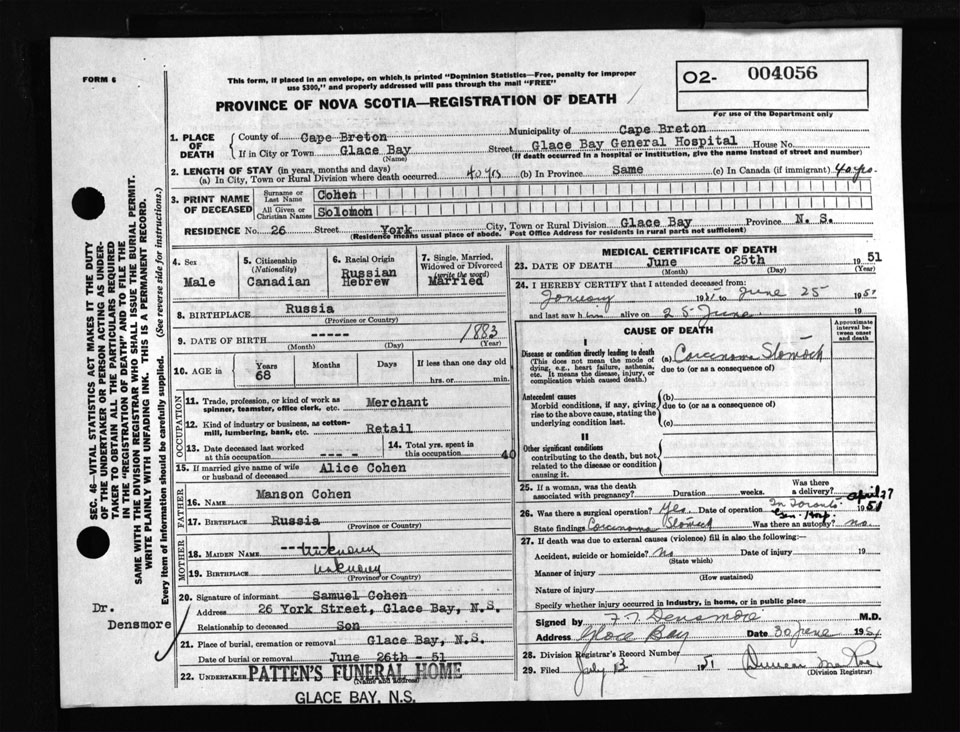 FORM 6
This form, if placed in an envelope, on which is printed "Dominion Statistics—Free, penalty for improper
use $300," and properly addressed will pass through the mail "FREE"
PROVINCE OF NOVA SCOTIA—REGISTRATION OF DEATH
O2- 004056
For use of the Department only
SEC. 46—VITAL STATISTICS ACT MAKES IT THE DUTY
OF THE UNDERTAKER OR PERSON ACTING AS UNDER-
TAKER TO OBTAIN ALL THE PARTICULARS REQUIRED
IN THE "REGISTRATION OF DEATH" AND TO FILE THE
SAME WITH THE DIVISION REGISTRAR WHO SHALL ISSUE THE BURIAL PERMIT.
WRITE PLAINLY WITH UNFADING INK. THIS IS A PERMANENT RECORD.
Every item of information should be carefully supplied. (See reverse side for instructions.)
1. PLACE OF DEATH County of Cape Breton Municipality of Cape Breton
If in City or Town Glace Bay Street Glace Bay General Hospital House No.
(Name) (If death occurred in a hospital or institution, give the name instead of street and number)
2. LENGTH OF STAY (in years, months and days)
(a) In City, Town or Rural Division where death occurred 40 yrs (b) In Province Same (c) In Canada (if immigrant) 40 yrs.
3. PRINT NAME OF DECEASED Surname or Last Name Cohen
All Given or Christian Names Solomon
RESIDENCE No. 26 Street York City, Town or Rural Division Glace Bay Province N. S.
(Residence means usual place of abode. Post Office Address for residents in rural parts not sufficient)
4. Sex Male
5. Citizenship (Nationality) Canadian
6. Racial Origin Russian Hebrew
7. Single, Married, Widowed or Divorced (write the word) Married
8. BIRTHPLACE Russia
(Province or Country)
9. DATE OF BIRTH ----- 1883
(Month) (Day) (Year)
10. AGE in Years 68 Months Days If less than one day old
hrs. or min.
OCCUPATION
11. Trade, profession, or kind of work as spinner, teamster, office clerk, etc. Merchant
12. Kind of industry or business, as cotton-mill, lumbering, bank, etc. Retail
13. Date deceased last worked at this occupation --- -
14. Total yrs. spent in this occupation 40
15. If married give name of wife or husband of deceased Alice Cohen
FATHER
16. NAME Manson Cohen
17. BIRTHPLACE Russia
(Province or Country)
MOTHER
18. MAIDEN NAME --- unknown
19. BIRTHPLACE unknown
(Province or Country)
20. Signature of informant Samuel Cohen
Address 26 York Street, Glace Bay, N.S.
Relationship to deceased Son
21. Place of burial, cremation or removal Glace Bay, N.S.
Date of burial or removal June 26th - 51
22. UNDERTAKER PATTEN'S FUNERAL HOME
(Name and address)
GLACE BAY, N.S.
Dr.
Densmore
MEDICAL CERTIFICATE OF DEATH
23. DATE OF DEATH June 25th 1951
(Month) (Day) (Year)
24. I HEREBY CERTIFY that I attended deceased from:
January 1951 to June 25 1951
and last saw him alive on 25 June
CAUSE OF DEATH
Approximate interval between onset and death
I
Disease or condition directly leading to death (a) Carcinoma Stomach
(This does not mean the mode of dying, e.g., heart failure, asthenia, etc. It means the disease, injury, or complication which caused death.)
due to (or as a consequence of)
Antecedent causes
Morbid conditions, if any, giving rise to the above cause, stating the underlying condition last.
(b)
due to (or as a consequence of)
(c)
II
Other significant conditions
contributing to the death, but not related to the disease or condition causing it.
25. If a woman, was the death associated with pregnancy? Duration weeks. Was there a delivery?
26. Was there a surgical operation? Yes. Date of operation In Toronto Gen. Hosp. April 27 1951
State findings Carcinoma Stomach Was there an autopsy? no
27. If death was due to external causes (violence) fill in also the following:—
Accident, suicide or homicide? No Date of injury 19
(State which)
Manner of injury
(How sustained)
Nature of injury
Specify whether injury occurred in industry, in home, or in public place
Signed by F. T. Densmore M.D.
Address Glace Bay Date 30 June 1951
28. Division Registrar's Record Number
29. Filed July 13 1951 Duncan
(Division Registrar)